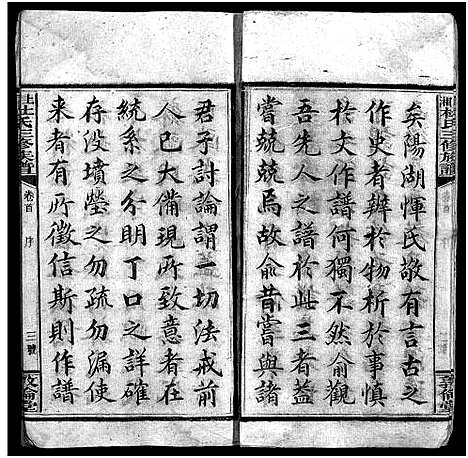 矣陽湖惲氏敬有言古之
作史者辨於物析於事慎
於文作譜何獨不然俞觀
吾先人之譜於此三者蓋
嘗兢兢焉故俞昔嘗與諸
君子討論謂一切法戒前
人已大備現所致意者在
統系之分明丁口之詳確
存没墳塋之勿疏勿漏使
来者有所徵信斯則作譜
杜氏三修族譜
卷首
序
三號
倫堂